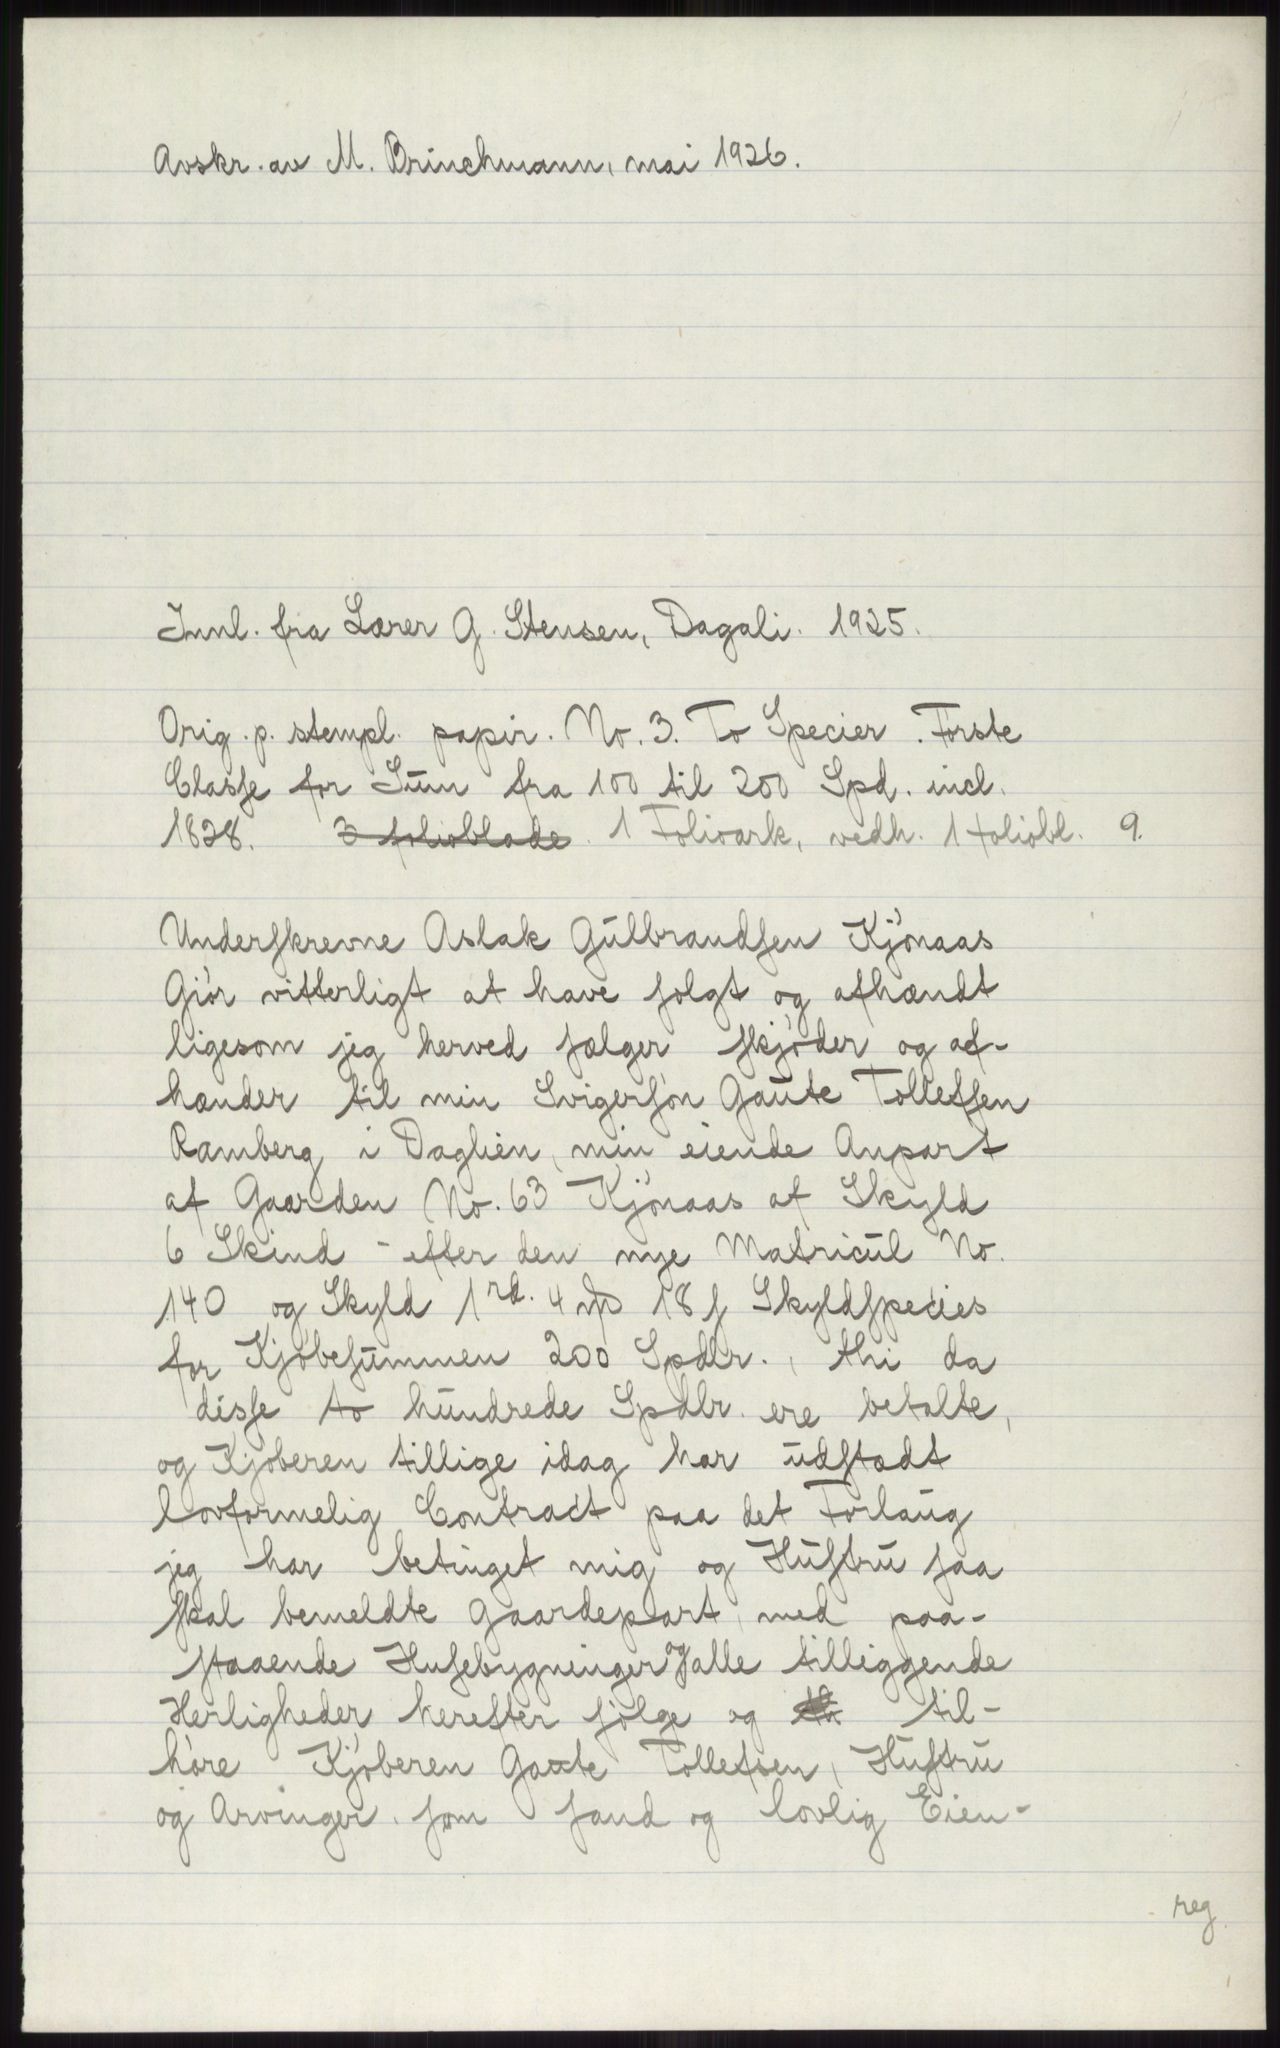 Avskr. av M. Brinchmann, mai 1926.
Innl. fra Lærer G. Stensen, Dagali. 1925.
Orig. p. stempl. papir. No. 3. To Specier. Første
Classe for Sum fra 100 til 200 Spd. incl.
1828. 3 folioblade. 1 Folioark, vedh. 1 foliobl. 9.
Underskrevne Aslak Gulbrandsen Kjönaas
Giör vitterligt at have solgt og afhændt
ligesom jeg herved sælger skjöder og af-
hænder til min Svigersön Gaute Tollefsen
Ramberg i Daglien, min eiende Anpart
af Gaarden No. 63 Kjönaas af Skyld
6 Skind - efter den nye Matricul No.
140 og Skyld 1 rd. 4 18 s Skyldspecies
for Kjöbesummen 200 Spdlr., thi da
disse to hundrede Spdlr. ere betalte,
og Kjöberen tillige idag har udstædt
lovformelig Contract paa det Forlaug
jeg har betinget mig og Hustru saa
skal bemeldte Gaardepart, med paa-
staaende Husebygninger og alle tilliggende
Herligheder herefter fölge og til-
höre Kjöberen Gaute Tollefsen, Hustru
og Arvinger, som sand og lovlig Eien-
reg.